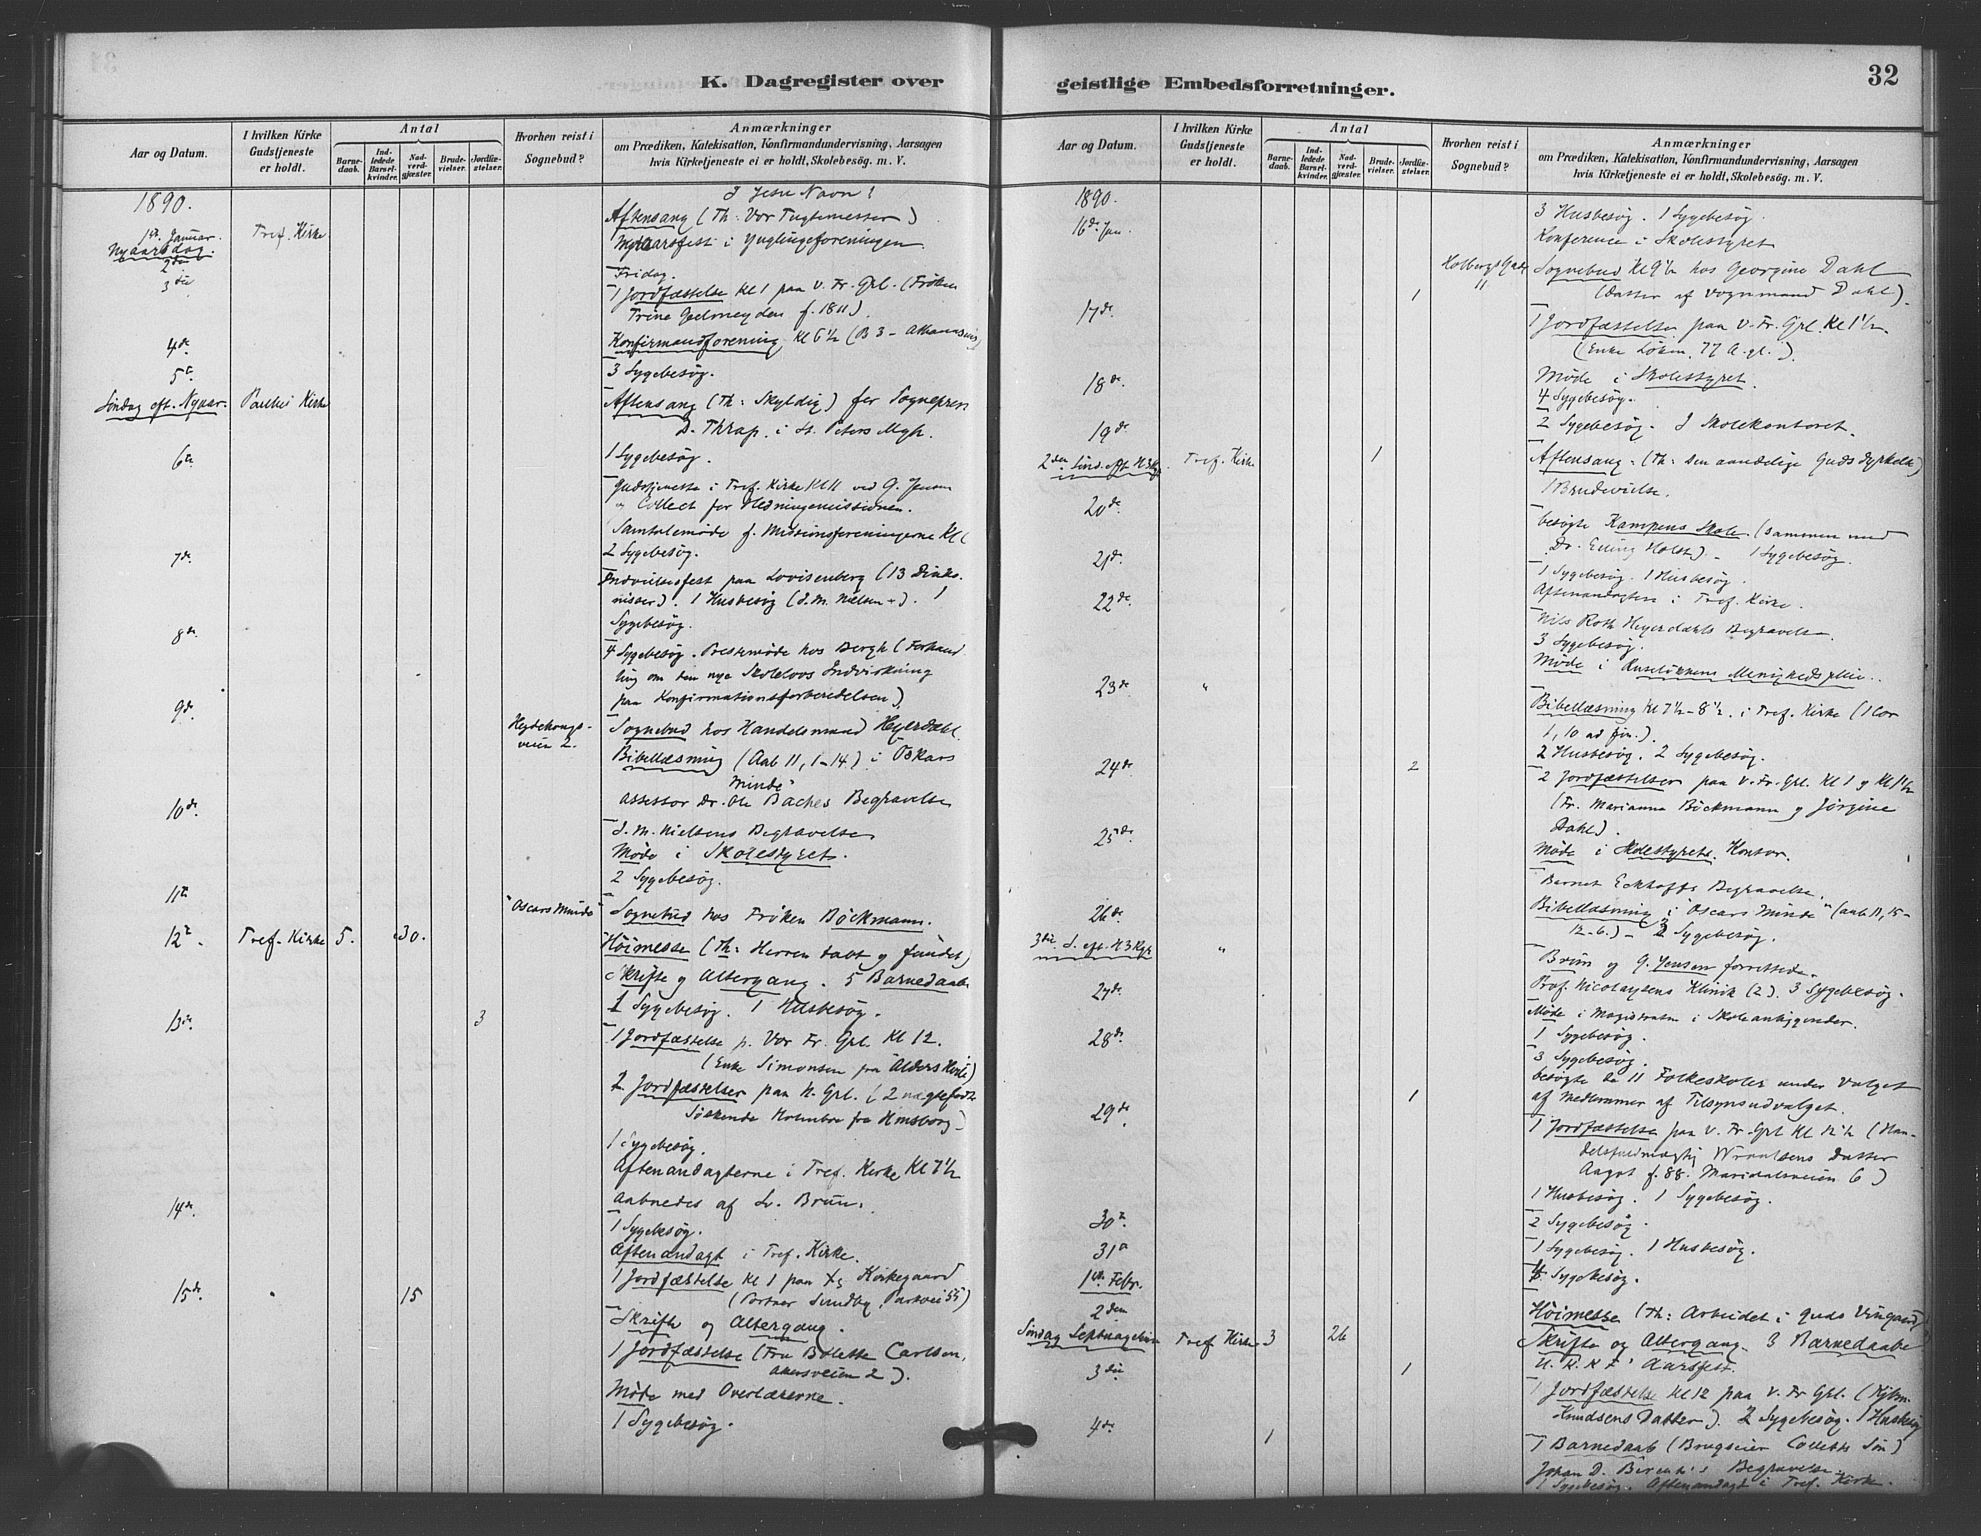 K. Dagregister over
geistlige Embedsforretninger.
32
Aar og Datum.
I hvilken Kirke
Gudstjeneste
er holdt.
Antal
Barne-
daab.
Ind-
ledede
Barsel-
kvinder.
Nad-
verd-
gjæster.
Brude-
vielser.
Jordfæ-
stelser.
Hvorhen reist i
Sognebud?
Anmærkninger
om Prædiken, Katekisation, Konfirmandundervisning, Aarsagen
hvis Kirketjeneste ei er holdt, Skolebesøg. m. V.
1890.
I Jesu Navn!
1ste Januar. Tref. Kirke Aftensang (Th: Vor Tugtemester)
Nyaarsdag. Nyaarsfest i Ynglingeforeningen
2den
Fridag.
3die 1 Jordfæstelse Kl 1 paa V. Fr. Grl. (Frøken
Trine f. 1811)
Konfirmandforening Kl 6½ (B 3 –
4de 3 Sygebesøg.
5te
Søndag eft. Nyaar. Paulus Kirke Aftensang (Th: Skyldig) for Sognepræst
D. Thrap. i St. Peters Mgh.
1 Sygebesøg.
6te Gudstjeneste i Tref. Kirke Kl 11 ved G. Jensen
og Collect for Hedningemissionen.
Samtalemøde f. Missionsforeningerne Kl
2 Sygebesøg.
7de Indvielsesfest paa Lovisenberg (13 Diako-
nisser). 1 Husbesøg (J. M. Nielsen +). 1
Sygebesøg.
8de 4 Sygebesøg. Prestemøde hos Bergh (Forhand
ling om den nye Skolelovs Indvirkning
paa Konfirmationsforberedelsen)
9de Hegdehaugs-
veien 2. Sognebud hos Handelsmand Heyerdahl.
Bibellæsning (Aab 11, 1–14) i Oskars
Minde"
Assessor Dr. Ole Baches Begravelse
10de J. M. Nielsens Begravelse
Møde i Skolestyret.
2 Sygebesøg.
11te "Oscars Minde" Sognebud hos Frøken Böckmann.
12te. Tref. Kirke 5. 30. Høimesse (Th: Herren tabt og fundet)
Skrifte og Altergang. 5 Barnedaab
1 Sygebesøg. 1 Husbesøg.
13de 3 1 Jordfæstelse p. Vor Fr. Grl Kl 12.
(Enke Simonsen fra Alders Hvile)
2 Jordfæstelser paa N. Grl. (2 uægtefødte
Søskende Holmboe fra
1 Sygebesøg.
Aftenandagterne i Tref. Kirke Kl 7½
aabnedes af Sv. Brun.
14de 1 Sygebesøg.
Aftenandagt i Tref. Kirke.
1 Jordfæstelse Kl 1 paa Kirkegaard
(Portner Sundby, Parkvei 55)
15de. " 15 Skrifte og Altergang.
1 Jordfæstelse (Fru Bolette Carlsen,
Akersveien 2).
Møde med Overlærerne.
1 Sygebesøg.
Aar og Datum.
I hvilken Kirke
Gudstjeneste
er holdt.
Antal
Barne-
daab.
Ind-
ledede
Barsel-
kvinder.
Nad-
verd-
gjæster.
Brude-
vielser.
Jordfæ-
stelser.
Hvorhen reist i
Sognebud?
Anmærkninger
om Prædiken, Katekisation, Konfirmandundervisning, Aarsagen
hvis Kirketjeneste ei er holdt, Skolebesøg. m. V.
1890.
16de Jan 3 Husbesøg. 1 Sygebesøg.
Konference i Skolestyret
Holbergs Gade
11 Sognebud Kl 9½ hos Georgine Dahl
(Datter af Vognmand Dahl).
17de 1 1 Jordfæstelse paa V. Fr. Grl. Kl 1½.
(Enke Løken, 77 A. gl.).
Møde i Skolestyret.
18de. 4 Sygebesøg.
2 Sygebesøg. I Skolekontoret.
19de
2den Sønd. eft. H3Kgr. Tref. Kirke 1 Aftensang: (Th: Den aandelige Guds dyrkelse)
1 Brudevielse.
20de. besøgte Kampens Skole (sammen med
Dr. Elling Holst) – 1 Sygebesøg.
21de 1 Sygebesøg. 1 Husbesøg.
Aftenandagten i Tref. Kirke.
22de. Nils Roth Heyerdahls Begravelse.
3 Sygebesøg.
Møde i Ruseløkkens Menighedspleie.
23de " Bibellæsning Kl 7½–8½. i Tref. Kirke (1 Cor
1, 10 ad fin.).
2 Husbesøg. 2 Sygebesøg.
24de 2 2 Jordfæstelser paa V. Fr. Grl. Kl 1 og Kl 1½
(Fr. Marianna Böckmann og Jørgine
Dahl).
25de Møde i Skolestyrets Kontor.
Barnet Eckhoffs Begravelse.
26de Bibellæsning i "Oscars Minde" (aab 11, 15–
12-6.) – 2 Sygebesøg.
3die S. eft. H3Kgr. " Brun og G. Jensen forrettede.
27de Prof. Nicolaysens Klinik (2). 3 Sygebesøg.
Møde i Magistraten i Skoleanliggender.
28de 1 Sygebesøg.
3 Sygebesøg.
besøgte de 11 Folkeskoler under Valget
af Medlemmer af Tilsynsudvalget.
29de 1 1 Jordfæstelse paa V. Fr. Grl Kl 12½ (Han-
delsfuldmægtig Datter
Aagot f. 88. Maridalsveien 6)
1 Husbesøg. 1 Sygebesøg.
30te. 2 Sygebesøg.
31te 1 Sygebesøg. 1 Husbesøg.
1ste Febr. Sygebesøg.
2den
Søndag Septuagesima Tref Kirke 3 26 Høimesse (Th: Arbeidet i Guds Vingaard)
Skrifte og Altergang. 3 Barnedaab
Aarsfest.
3die 1 1 Jordfæstelse Kl 12 paa V. Fr Grl. (Kjbm.
Knudsens Datter). 2 Sygebesøg. 1 Husbesøg
4de 1 1 Barnedaab (Brugseier Colletts Søn)
Johan D. Begravelse.
1 Sygebesøg. Aftenandagt i Tref. Kirke.